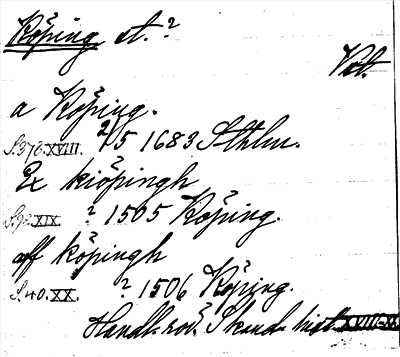 Köping st.?
Vstl.
a Köping.
S.376.XVIII. 2/5 1683 Sthlm.
Ex kiöpingh
S.92.XIX. ? 1505 Köping.
aff köpingh
S.40.XX. ? 1506 Köping.
Handl. rör. Skand. hist. XVIII-XX